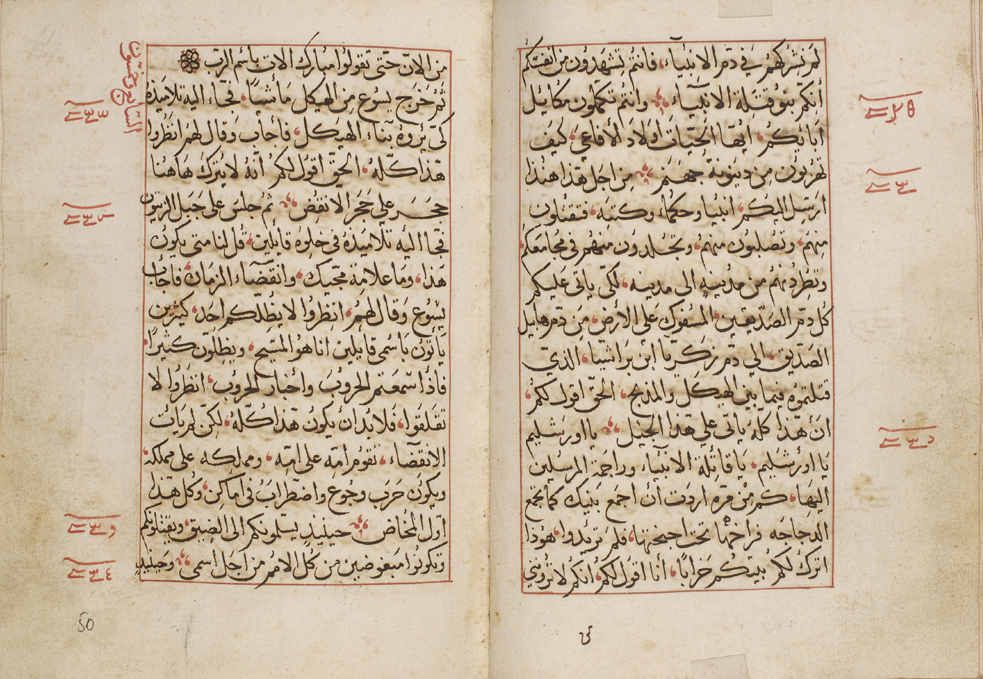 لم نشركهم في دم الانبياء، فانتم تشهدون من انفسكم
انكم بنو قتلة الانبياء وانتم تكملون مكاييل
ابائكم، ايها الحيات اولاد الأفاعي، كيف
تهربون من دينونة جهنم من اجل هذا هنذا
ارسل اليكم، انبياء وحكماء، وكتبه، فتقتلون
منهم، وتصلبون منهم، وتجلدون منهم في مجامعكم
وتطردونهم من مدينه الى مدينه، لكي ياتي عليكم
كل دم الصديقين، المسفوك علي الأرض، من دم هابيل
الصديق، الي دم زكريا ابن براشيا، الذي
قتلتموه فيما بين الهيكل والمذبح، الحق اقول لكم،
ان هذا كله ياتي علي هذا الجيل، يا اورشليم
يا اورشليم، يا قاتلة الانبياء وراجمة المرسلين
اليها، كم من مره اردت أن اجمع بنيك كما تجمع
الدجاجه فراخها تحت اجنحتها، فلم تريدوا، هوذا
اترك لكم بيتكم خرابا، أنا اقول لكم، انكم لا تروني
من الان حتي تقولوا مبارك الات باسم الرب
ثم خرج يسوع من الهيكل ماشيا، فجاء اليه تلاميذه
كي يروه بناء الهيكل، فأجاب وقال لهم انظروا
هذا كله، الحق اقول لكم أنه لا يترك هاهنا
حجر علي حجر الا نقض ثم جلس علي جبل الزيتون
فجا اليه تلاميذه في خلوه قايلين، قل لنا متي يكون
هذا، وما علامة مجيك، وانقضاء الزمان، فاجاب
يسوع وقال لهم، انظروا لا يضلكم احد، كثيرين
ياتون باسمي قايلين انا هو المسيح، ويضلون كثيرا،
فاذا سمعتم الحروب واخبار الحروب، انظروا لا
تقلقوا، فلا بد أن يكون هذا كله، لكن لم يات
الانقضاء، تقوم امة علي امة، ومملكه علي مملكه
ويكون حرب وجوع واضطراب في اماكن، وكل هذا
اول المخاض، حينيذ يسلمونكم الي الضيق، ويقتلونكم
وتكونوا مبغوضين من كل الأمم من اجل اسمي وحينيذ
50